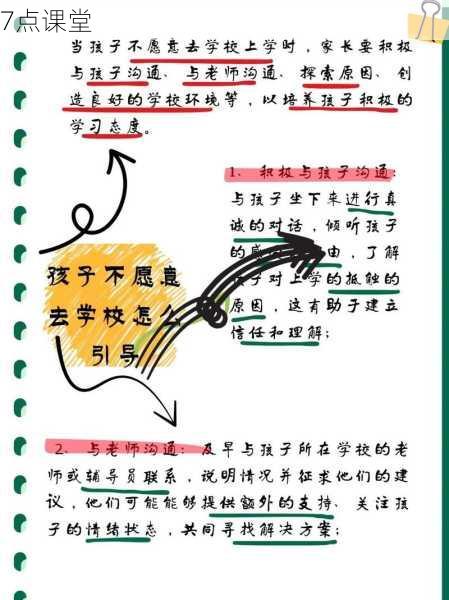 7点课堂
当孩子不愿意去学校上学时，家长要积极
与孩子沟通、与老师沟通、探索原因、创
造良好的学校环境等，以培养孩子积极的
学习态度。
孩子不愿意
去学校怎么
引导
1、积极与孩子沟通：
与孩子坐下来进行真
诚的对话，倾听孩子
的感 由，了解
孩子对上学的抵触的
原因，这有助于建立
信任和理解；
2、与老师沟通：及早与孩子所在学校的老
师或辅导员联系，说明情况并征求他们的建
议，他们可能能够提供额外的支持、关注孩
子的情绪状态，共同寻找解决方案；